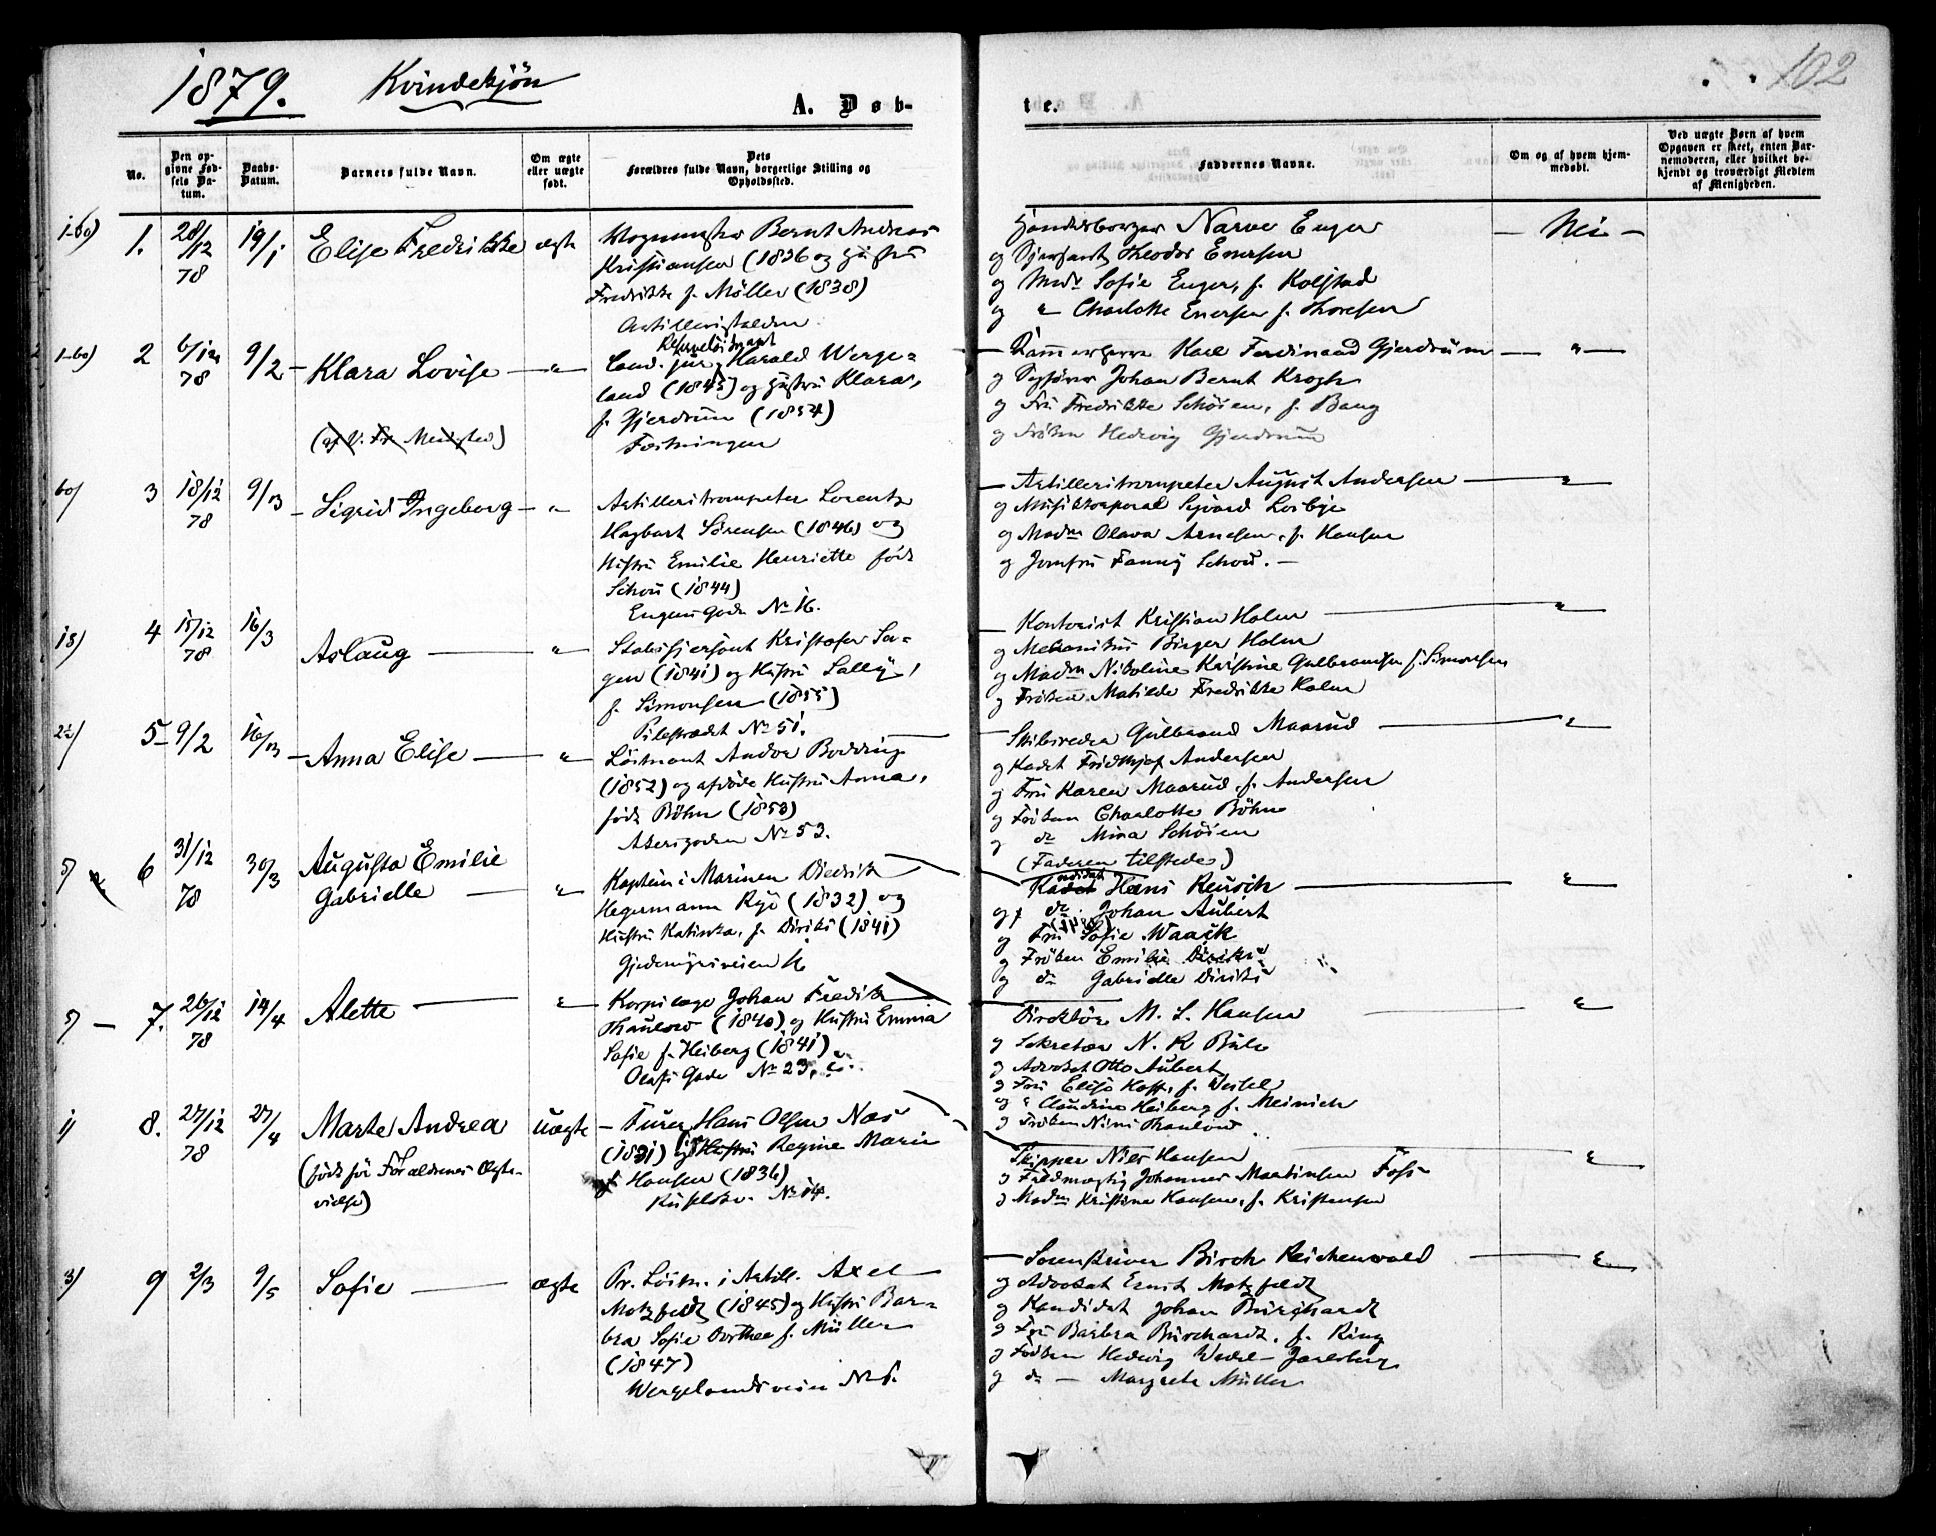 1879. Kvindekjön
102
A. Døb-
te.
No.
Den op-
givne Fød-
sels Da-
tum.
Daabs-
Datum.
Barnets fulde Navn.
Om ægte
eller uægte
født.
Dets
Forældres fulde Navn, borgerlige Stilling og
Opholdssted.
Faddernes Navne.
Om og af hvem hjem-
medøbt.
Ved uægte Børn af hvem
Opgaven er skeet, enten Bar-
nemoderen, eller hvilket be-
kjendt og troværdigt Medlem
af Menigheden.
1. 28/12 78 19/1 Elise Fredrikke ægte
Vognmester Bernt Andreas
Kristiansen (1836 og Hustru
Fredrikke f. Möller (1838)
Artilleristalden
Handelsborger Narve Enger
og Sjersant Theodor Enersen
og Mad. Sofie Enger, f. Kolstad
og " Charlotte Enersen f. Thoresen
— Nei —
2 6/12 78 9/2 Klara Lovise "
(af V. Fr. Menighed)
Reservelöitnant
Cand. jur. Harald Werge-
land (1845) og Hustru Klara,
f. Gjerdrum (1854)
Fæstningen
Kammerherre Karl Ferdinand Gjerdrum "
og Sagförer Johan Bernt Krogh
og Fru Fredrikke Schöien, f. Bang
og Fröken Hedvig Gjerdrum
3 18/12 78 9/3 Sigrid Ingeborg "
Artilleritrompeter Lorentz
Hagbart Sörensen (1846) og
Hustru Emilie Henriette född
Schou (1844)
Eugenigade No 16.
Artilleritrompeter August Andersen "
og Musikkorporal Sjvard Loibye
og Madm Olava Arnesen, f. Hansen
og Jomfru Fanny Schou. —
4 15/12 78 16/3 Aslaug "
Stabssjersant Kristofer Sa-
gen (1841) og Hustru Sally,
f. Simonsen (1855)
Pilestrædet No 51.
Kontorist Kristian Holm "
og Mekanikus Birger Holm
og Madm Nikoline Kristine Gulbrandsen f. Simonsen
og Fröken Matilde Fredrikke Holm
5 9/2 16/3 Anna Elise "
Löitnant Andor Bodding
(1852) og afdöde Hustru Anna,
född Böhn (1853)
Akersgaden No 53.
Skibsreder Gulbrand Maarud "
og Kadet Fridthjof Andersen
og Fru Karen Maarud, f. Andersen
og Fröken Charlotte Böhn
og do Mina Schöien
(Faderen tilstede)
6 31/12 78 30/3 Augusta Emilie
Gabrielle "
Kaptein i Marinen Diedrik
Hegermann Rye (1832) og
Hustru Katinka, f. Diriks (1841)
Gjedemyrsveien
Kadet Hans Reusch "
og do. Johan Aubert
og Fru Sofie Waack
og Fröken Emilie Diriks
og do Gabrielle Diriks
7. 26/12 78 14/4 Alette "
Korpslæge Johan Fredrik
Thaulow (1840) og Hustru Emma
Sofie f. Heiberg (1841)
Olafs Gade No 23,
Direktör M. S. Hansen "
og Sekretær N. R Bull
og Advokat Otto Aubert
og Fru Elise Hoff, f. Weisel
og " Claudine Heiberg f. Meinich
og Fröken Nini Thaulow
8. 27/12 78 27/4 Marte Andrea uægte
(född för Forældrenes Ægte-
vielse)
Furer Hans Olsen Næs
(1831) og Hustru Regine Marie
f. Hansen (1836)
No 14.
Skipper Nils Hansen "
og Fuldmægtig Johannes Martinsen Foss
og Madm Kristine Hansen, f. Kristensen
9 2/3 9/5 Sofie ægte
Pr. Löitn. i Artill. Axel
Motzfeldt (1845) og Hustru Bar-
bra Sofie Dorthea f. Müller
(1847)
Wergelandsveien No 5.
Sorenskriver Birch Reichenwald "
og Advokat Ernst Motzfeldt
og Kandidat Johan Burchardt
og Fru Barbra Burchardt, f. Ring
og Fröken Hedevig Wedel-Jarlsberg
og do — Margrete Müller